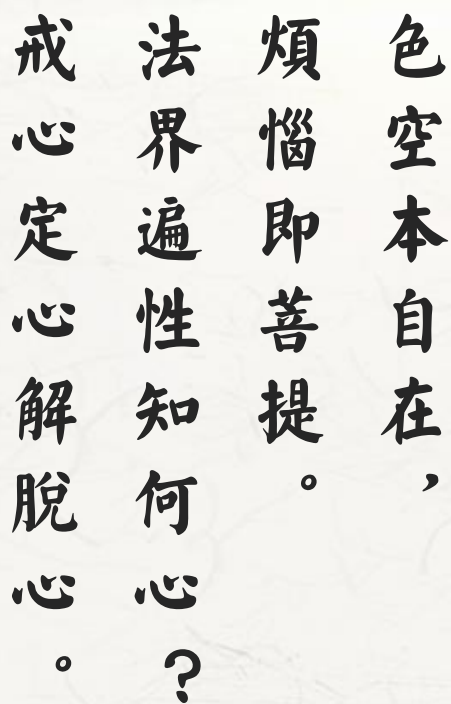 色空本自在，
煩惱即菩提。
法界遍性知何心？
戒心定心解脫心。